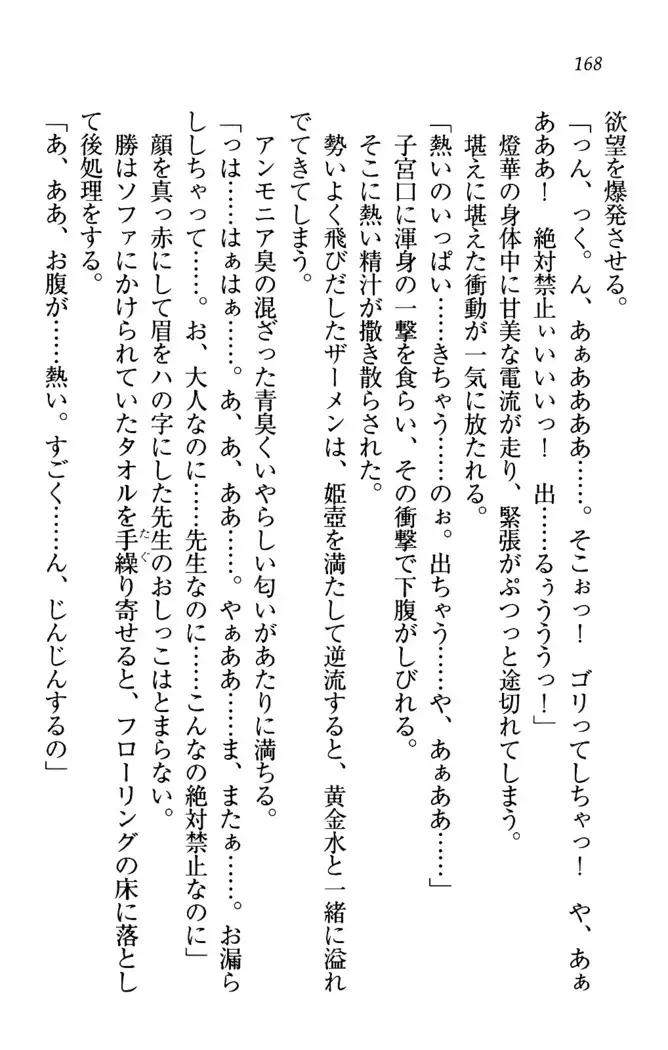 168
欲望を爆発させる。
「っん、っく。ん、あぁああああ……。そこぉっ！　ゴリってしちゃっ！　や、あぁ
あああ！　絶対禁止ぃいいいっ！　出……るぅうううっ！」
燈華の身体中に甘美な電流が走り、緊張がぷつっと途切れてしまう。
堪えに堪えた衝動が一気に放たれる。
「熱いのいっぱい……きちゃう……のぉ。出ちゃう……や、あぁああ……」
子宮口に渾身の一撃を食らい、その衝撃で下腹がしびれる。
そこに熱い精汁が撒き散らされた。
勢いよく飛びだしたザーメンは、姫壺を満たして逆流すると、黄金水と一緒に溢れ
でてきてしまう。
アンモニア臭の混ざった青臭くいやらしい匂いがあたりに満ちる。
「っは……はぁはぁ……。あ、あ、ああ……。やぁああ……ま、またぁ……。お漏ら
ししちゃって……。お、大人なのに……先生なのに……こんなの絶対禁止なのに」
顔を真っ赤にして眉をハの字にした先生のおしっこはとまらない。
勝はソファにかけられていたタオルを手繰り寄せると、フローリングの床に落とし
たぐ
て後処理をする。
「あ、ああ、お腹が……熱い。すごく……ん、じんじんするの」